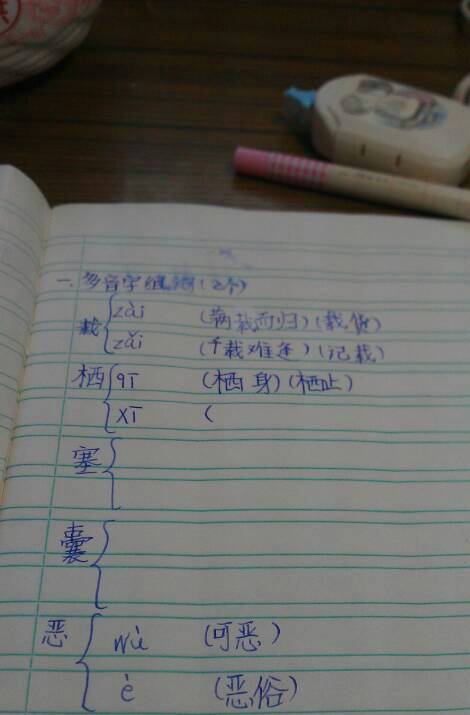 一.多音字组词(2个)
载 zài (满载而归)(载货)
zǎi (千载难逢)(记载)
栖 qī (栖身)(栖止)
xī (
塞
囊
恶 wù (可恶)
è (恶俗)